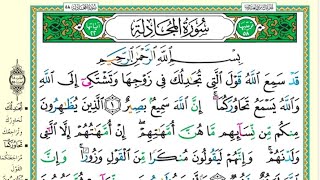 سُورَةُ الْمُجَادِلَةِ
بِسْمِ اللَّهِ الرَّحْمَٰنِ الرَّحِيمِ
قَدْ سَمِعَ اللَّهُ قَوْلَ الَّتِي تُجَادِلُكَ فِي زَوْجِهَا وَتَشْتَكِي إِلَى اللَّهِ
وَاللَّهُ يَسْمَعُ تَحَاوُرَكُمَا إِنَّ اللَّهَ سَمِيعٌ بَصِيرٌ ١ الَّذِينَ يُظَاهِرُونَ
مِنكُم مِّن نِّسَائِهِم مَّا هُنَّ أُمَّهَاتِهِمْ إِنْ أُمَّهَاتُهُمْ إِلَّا اللَّائِي
وَلَدْنَهُمْ وَإِنَّهُمْ لَيَقُولُونَ مُنكَرًا مِّنَ الْقَوْلِ وَزُورًا وَإِنَّ